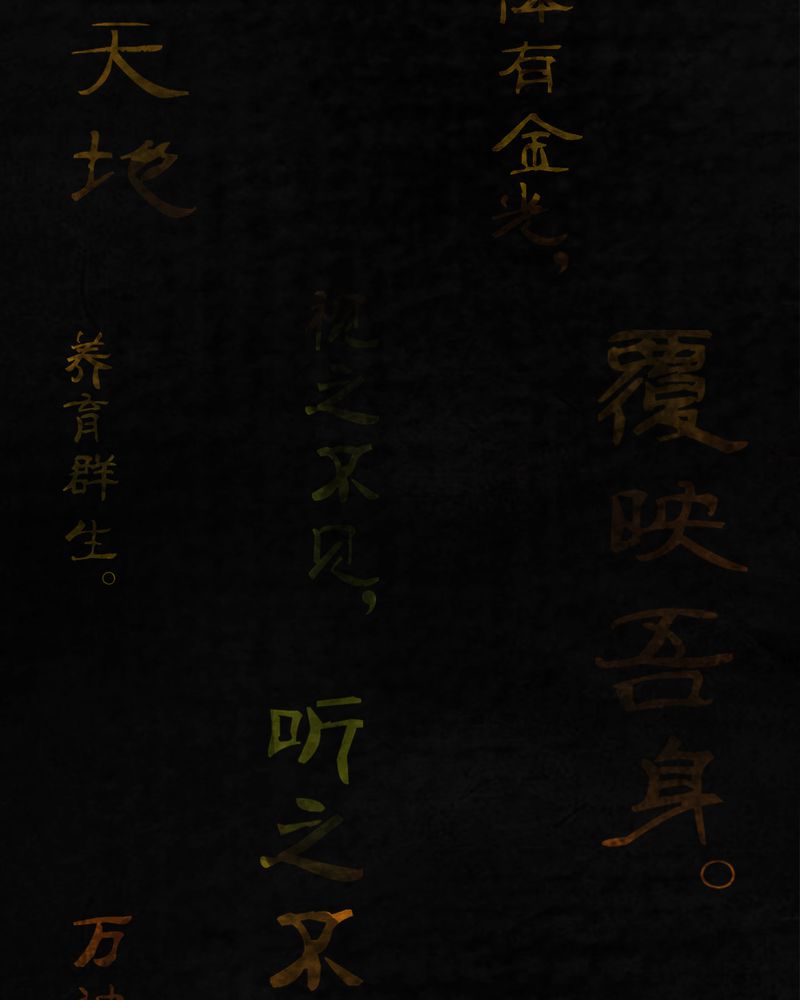 体有金光,
覆映吾身。
视之不见,
听之不
天地
养育群生。
万